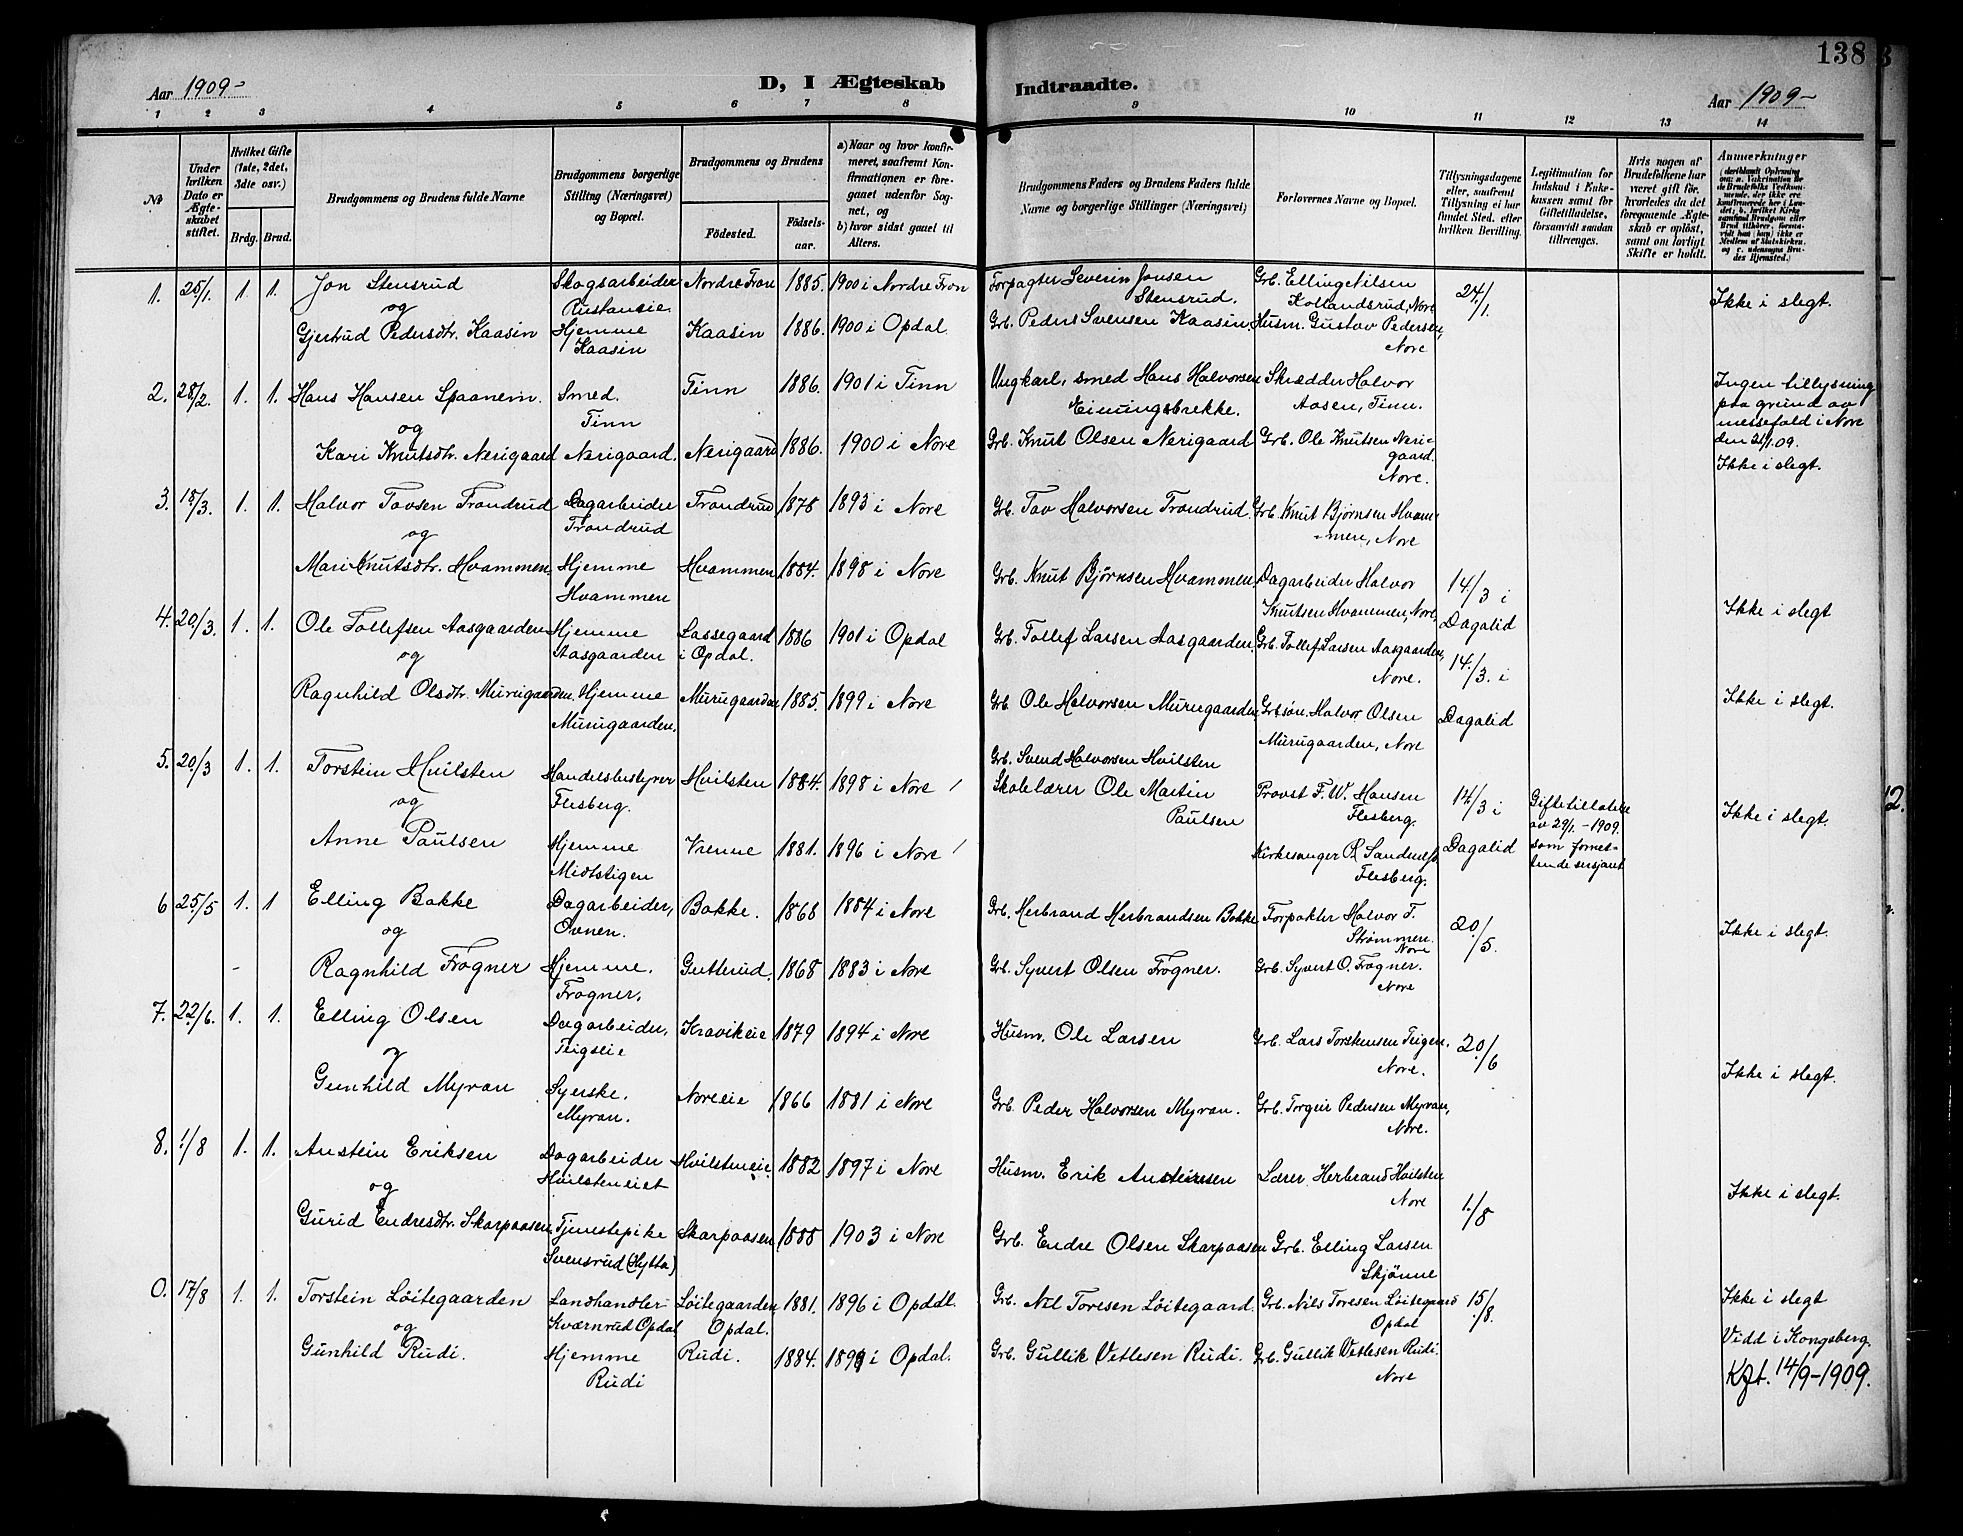 138
Aar 1909- D, I Ægteskab Indtraadte. Aar 1909-
1 2 3 4 5 6 7 8 9 10 11 12 13 14
№
Under hvilken Dato er Ægteskabet stiftet.
Hvilket Gifte (1ste, 2det, 3die osv.)
Brdg. Brud.
Brudgommens og Brudens fulde Navne
Brudgommens borgerlige Stilling (Næringsvei) og Bopæl.
Brudgommens og Brudens
Fødested. Fødselsaar.
a) Naar og hvor konfirmeret, saafremt Konfirmationen er foregaaet udenfor Sognet, og
b) hvor sidst gaaet til Alters.
Brudgommens Faders og Brudens Faders fulde Navne og borgerlige Stillinger (Næringsvei)
Forlovernes Navne og Bopæl.
Tillysningsdagene eller, saafremt Tillysning ei har fundet Sted, efter hvilken Bevilling.
Legitimation for Indskud i Enkekassen samt for Giftetilladelse, forsaavidt saadan tiltrænges.
Hvis nogen af Brudefolkene har været gift før, hvorledes da det foregaaende Ægteskab er opløst, samt om lovligt Skifte er holdt.
Anmærkninger
1. 25/1. 1. 1. Jon Stensrud Skogsarbeider Nordre Fron 1885. 1900 i Nordre Fron Forpagter Severin Jonsen Grb. Elling Nilsen 24./1.
og Rustaneie Stensrud. Kollandsrud, Nore Ikke i slegt.
Gjertrud Pedersdtr. Kaasin Hjemme Kaasin 1886. 1900 i Opdal Grb. Peder Svensen Kaasin. Husm. Gustav Pedersen,
Kaasin Nore
2. 28/2. 1. 1. Hans Hansen Spaanem. Smed. Tinn 1886. 1901 i Tinn Ungkarl, smed Hans Halvorsen Skrædder Halvor Ingen tillysning
og Tinn Einingsbrekke. Aasen, Tinn. paa grund av
messefald i Nore
Kari Knutsdtr. Nerigaard Nerigaard. Nerigaard 1886. 1900 i Nore Grb. Knut Olsen Nerigaard Grb. Ole Knutsen Nerigaard. den 21/1.09.
Nore. Ikke i slegt.
3. 15/3. 1. 1. Halvor Tovsen Trondrud Dagarbeider Trondrud 1878 1893 i Nore Grb. Tov Halvorsen Trondrud. Grb. Knut Bjørnsen Hvam-
og Trondrud -men, Nore
Mari Knutsdtr. Hvammen. Hjemme Hvammen 1884. 1898 i Nore Grb. Knut Bjørnsen Hvammen. Dagarbeider Halvor 14./3 i
Hvammen Knutsen Hvammen, Nore, Dagalid Ikke i slegt
4. 20/3. 1. 1. Ole Tollefsen Aasgaarden Hjemme Lassegaard 1886 1901 i Opdal Grb. Tollef Larsen Aasgaarden. Grb. Tollef Larsen Aasgaarden,
og Aasgaarden i Opdal. Nore. 14./3. i
Ragnhild Olsdtr. Murugaarden. Hjemme Murugaarden 1885. 1899 i Nore Grb. Ole Halvorsen Murugaarden Grbsøn. Halvor Olsen Dagalid Ikke i slegt.
Murugaarden. Murugaarden, Nore
5. 20/3 1. 1. Torstein Hvilsten Handelsbestyrer Hvilsten 1884. 1898 i Nore Grb. Svend Halvorsen Hvilsten
og Flesberg. Skolelærer Ole Martin Provst F. W. Hansen 14/3 i Giftetilladelse
Paulsen Flesberg. av 29/1.-1909. Ikke i slegt.
Anne Paulsen Hjemme Vrenne 1881. 1896 i Nore Kirkesanger Dagalid som forret-
Midtstigen Flesberg. tende sersjant
6 25/5 1. 1 Elling Bakke Dagarbeider, Bakke. 1868 1884 i Nore Grb. Herbrand Herbrandsen Bakke Forpakter Halvor T. 20./5.
og Ovnen. Strømmen. Nore Ikke i slegt.
Ragnhild Frogner Hjemme. Gutterud. 1868 1883 i Nore Grb. Syvert Olsen Frogner. Grb. Syvert O. Frogner.
Frogner. Nore
7. 22/6. 1. 1. Elling Olsen Dagarbeider, Kravikeie 1879 1894 i Nore Husm. Ole Larsen Grb. Lars Torstensen Teigen. 20./6
og Teigseie Nore.
Gunhild Myran Syerske. Noreeie 1866 1881 i Nore Grb. Peder Halvorsen Myran. Grb. Torgeir Pedersen Myran, Ikke i slegt.
Myran. Nore.
8. 1/8 1. 1. Anstein Eriksen Dagarbeider Hvilsteneie 1882 1897 i Nore Husm. Erik Ansteinsen Lærer Herbrand Hvilsten
og Hvilsteneiet Nore 1./8 Ikke i slegt.
Gurid Endresdtr. Skarpaasen Tjenestepike Skarpaasen 1888 1903 i Nore Grb. Endre Olsen Skarpaasen Grb. Elling Larsen
Svensrud (Hytta) Skjønne
0. 17/8 1. 1. Torstein Løitegaarden Landhandler Løitegaarden 1881. 1896 i Opdal. Grb. Nil Toresen Løitegaard. Grb. Nils Toresen Løitegaard 15./8. Ikke i slegt
og Kværnrud Opdal Opdal. Opdal Vidd i Kongsberg.
Gunhild Rudi. Hjemme Rudi. 1884. 1899 i Opdal. Grb. Gullik Vetlesen Rudi. Grb. Gullik Vetlesen Rudi. Kgt. 14/9-1909.
Rudi Nore